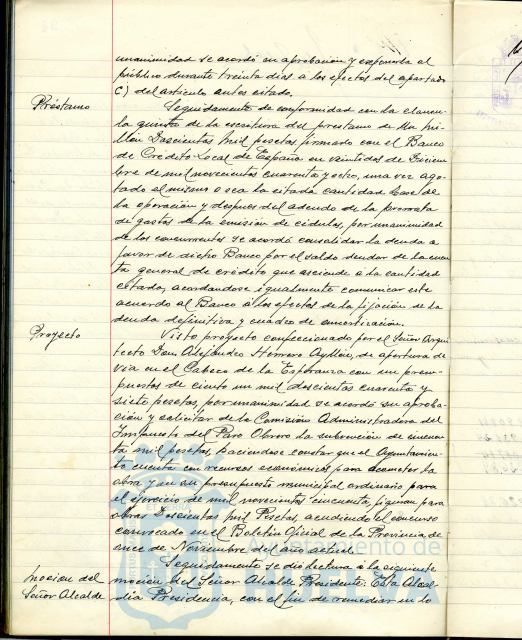 unanimidad se acordó su aprobación y exponerla al
público durante treinta días a los efectos del apartado
C) del artículo antes citado.
Préstamo
Seguidamente de conformidad con la cláusu-
la quinta de la escritura del prestamo de Un mi-
llón Doscientas mil pesetas firmado con el Banco
de Crédito Local de España en veintidos de Diciem-
bre de mil novecientos cuarenta y ocho, una vez ago-
tado el mismo o sea la citada cantidad base de
la operación y despues del adeudo de la prorrata
de gastos de la emisión de cédulas, por unanimidad
de los concurrentes se acordó consolidar la deuda a
favor de dicho Banco por el saldo deudor de la cuen-
ta general de crédito que asciende a la cantidad
citada, acordandose igualmente comunicar este
acuerdo al Banco a los efectos de la fijación de la
deuda definitiva y cuadro de amortización.
Proyecto
Visto proyecto confeccionado por el Señor Arqui-
tecto Don Alejandro Herrero Ayllón, de apertura de
vía en el Cabezo de la Esperanza con un presu-
puesto de ciento un mil doscientas cuarenta y
siete pesetas, por unanimidad se acordó su aproba-
ción y solicitar de la Comisión Administradora del
Impuesto del Paro Obrero la subvención de cincuen-
ta mil pesetas, haciendose constar que el Ayuntamien-
to cuenta con recursos económicos para acometer la
obra y en su presupuesto municipal ordinario para
el ejercicio de mil novecientos cincuenta, figuran para
obras Doscientas mil Pesetas, acudiendo al concurso
convocado en el Boletín Oficial de la Provincia de
once de Noviembre del año actual.
Mocion del
Señor Alcalde
Seguidamente se dió lectura a la siguiente
moción del Señor Alcalde Presidente: Esta Alcal-
día Presidencia, con el fin de remediar en lo
Ayuntamiento de
HUELVA